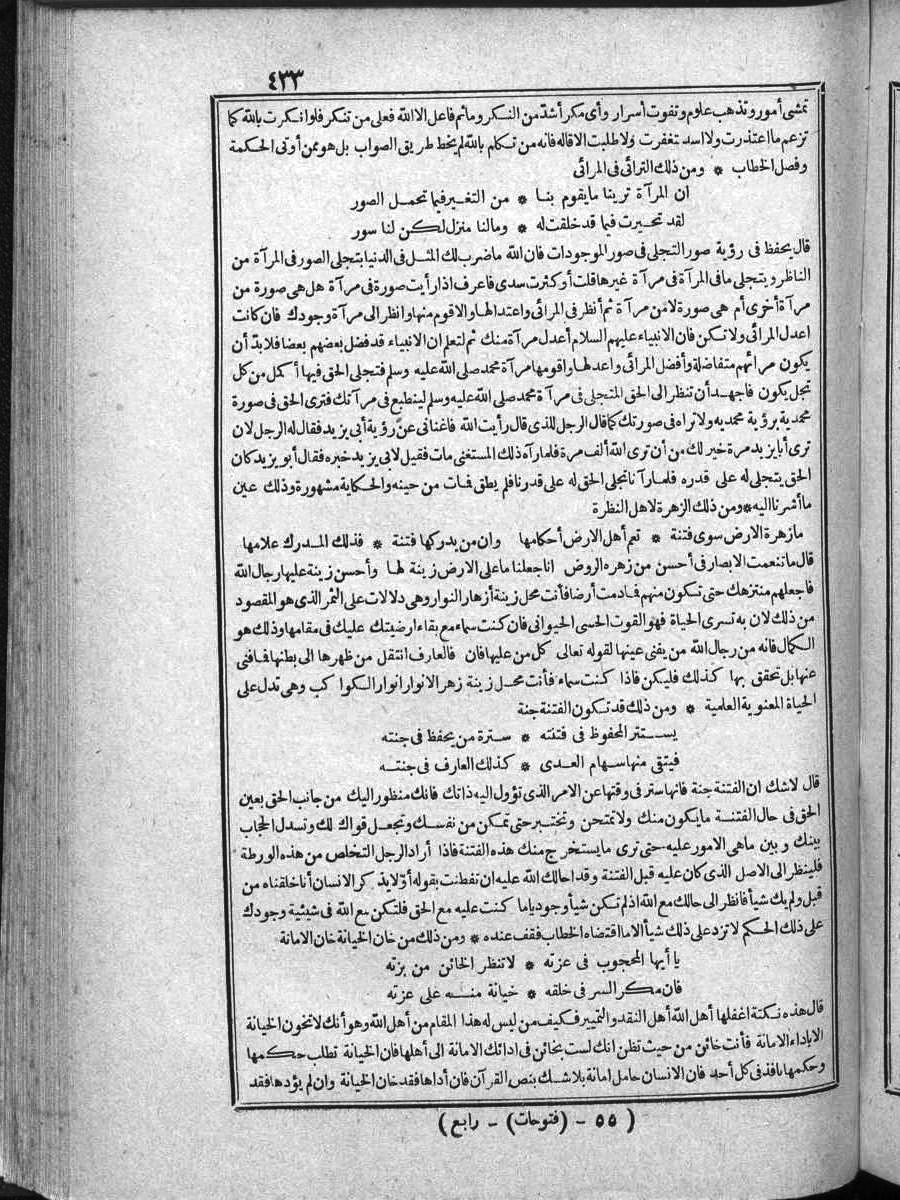 ٤٣٣
تمشى أمور وتذهب علوم وتفوت أسرار وأى مكر أشد من النكر وما ثم فاعل الا الله فعلى من تنكر فلو أنكرت بالله كما
تزعم ما اعتذرت ولا استغفرت ولا طلبت الاقالة فانه من تكلم بالله لم يخط طريق الصواب بل هو ممن أوتى الحكمة
وفصل الخطاب * ومن ذلك الترائى فى المرائى
ان المرآة ترينا ما يقوم بنا * من التغيير فيما تحمل الصور
لقد تحيرت فيما قد خلقت له * ومالنا منزل لكن لنا سور
قال يحفظ فى رؤية صور التجلى فى صور الموجودات فان الله ما ضرب لك المثل فى الدنيا بتجلى الصور فى المرآة من
الناظر ويتجلى ما فى المرآة فى مرآة غيرها قلت أو كثرت سدى فاعرف اذا رأيت صورة فى مرآة هل هى صورة من
مرآة أخرى أم هى صورة لا من مرآة ثم أنظر فى المرائى واعتدالها والاقوم منها وانظر الى مرآة وجودك فان كانت
اعدل المرائى ولا تكن فان الانبياء عليهم السلام أعدل مرآة منك ثم لتعلم ان الانبياء قد فضل بعضهم بعضا فلا بد أن
يكون مرائهم متفاضلة وأفضل المرائى واعدلها واقومها مرآة محمد صلى الله عليه وسلم فتجلى الحق فيها أكمل من كل
تجل يكون فاجهد أن تنظر الى الحق المتجلى فى مرآة محمد صلى الله عليه وسلم لينطبع فى مرآتك فترى الحق فى صورة
محمدية برؤية محمدية ولا تراه فى صورتك كما قال الرجل للذى قال رأيت الله فاغنانى عن رؤية أبى يزيد فقال له الرجل لان
ترى أبا يزيد مرة خير لك من أن ترى الله ألف مرة فلما رآه ذلك المستغنى مات فقيل لابى يزيد خبره فقال أبو يزيد كان
الحق يتجلى له على قدره فلما رآنا تجلى الحق له على قدرنا فلم يطق فمات من حينه والحكاية مشهورة وذلك عين
ما أشرنا اليه * ومن ذلك الزهرة لاهل النظرة
ما زهرة الارض سوى فتنة * تعم أهل الارض أحكامها وان من يدركها فتنة * فذلك المدرك علامها
قال ما تنعمت الابصار فى أحسن من زهره الروض انا جعلنا ما على الارض زينة لها وأحسن زينة عليها رجال الله
فاجعلهم منتزهك حتى تكون منهم فما دمت أرضا فأنت محل زينة أزهار النوار وهى دلالات على الثمر الذى هو المقصود
من ذلك لان به تسرى الحياة فهو القوت الحسى الحيوانى فان كنت سماء مع بقاء ارضيتك عليك فى مقامها وذلك هو
الكمال فانه من رجال الله من يفنى عينها لقوله تعالى كل من عليها فان فالعارف انتقل من ظهرها الى بطنها فما فنى
عنها بل تحقق بها كذلك فليكن فاذا كنت سماء فأنت محل زينة زهر الانوار انوار الكواكب وهى تدل على
الحياة المعنوية العلمية * ومن ذلك قد تكون الفتنة جنة
يستتر المحفوظ فى فتنته * سترة من يحفظ فى جنته
فيتقى منها سهام العدى * كذلك العارف فى جنته
قال لا شك ان الفتنة جنة فانها ستر فى وقتها عن الامر الذى تؤول اليه ذاتك فانك منظور اليك من جانب الحق بعين
الحق فى حال الفتنة ما يكون منك ولا تمتحن وتختبر حتى تمكن من نفسك وتجعل قواك لك وتسدل الحجاب
بينك وبين ماهى الامور عليه حتى ترى ما يستخرج منك هذه الفتنة فاذا أراد الرجل التخلص من هذه الورطة
فلينظر الى الاصل الذى كان عليه قبل الفتنة وقد احالك الله عليه ان تفطنت بقوله أولا يذكر الانسان أنا خلقناه من
قبل ولم يك شيأ فانظر الى حالك مع الله اذ لم تكن شيأ وجوديا ما كنت عليه مع الحق فلتكن مع الله فى شيئية وجودك
على ذلك الحكم لا تزد على ذلك شيأ الا ما اقتضاه الخطاب فقف عنده * ومن ذلك من خان الخيانة خان الامانة
يا أيها المحجوب فى عزته * لا تنظر الخائن من بزته
فان مكر السر فى خلقه * خيانة منه على عزته
قال هذه نكتة اغفلها أهل الله أهل النقد والتمييز فكيف من ليس له هذا المقام من أهل الله وهو أنك لا تخون الخيانة
الا باداء الامانة فأنت خائن من حيث تظن انك لست بخائن فى ادائك الامانة الى أهلها فان الخيانة تطلب حكمها
وحكمها نافذ فى كل أحد فان الانسان حامل امانة بلا شك بنص القرآن فان أداها فقد خان الخيانة وان لم يؤدها فقد
( ٥٥ - (فتوحات) - رابع )